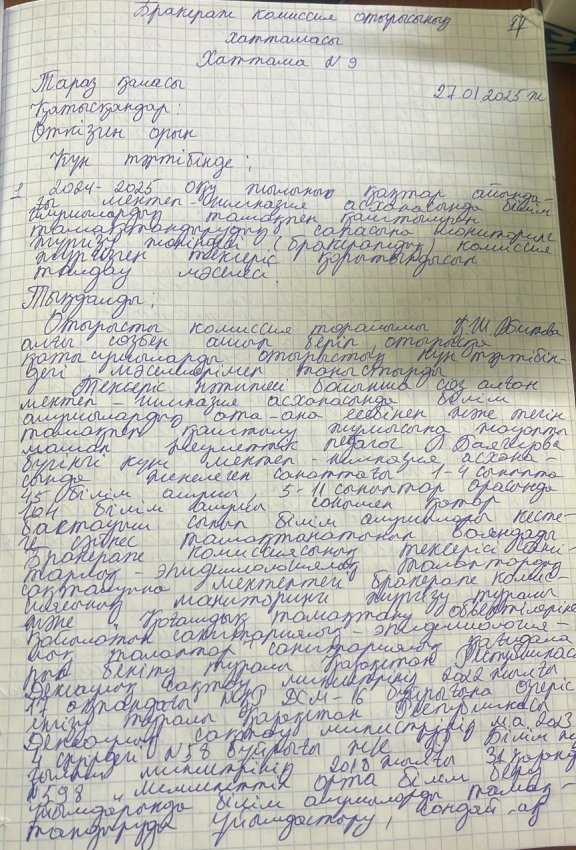 Бракераж комиссия отырысының
хаттамасы
Хаттама N 9
Тараз қаласы 27.01.2025 ж
Қатысқандар:
Өткізген орын
Күн тәртібінде;
1. 2024-2025 оқу жылының қаңтар айында-
ғы мектеп-гимназия асханасында білім
алушылардың тамақпен қамтылуын
тамақтандырудың сапасына мониторинг
жүргізу жөніндегі (бракераждық) комиссия
жүргізген тексеріс қорытындысын
талдау мәселесі.
Тыңдалды;
Отырысты комиссия төрайымы
алғы сөзбен ашып беріп отырысқа
қатысушыларды отырыстың күн тәртібін-
дегі мәселелерімен таныстырды
Тексеріс нәтижесі бойынша сөз алған
мектеп-гимназия асханасында білім
алушылардың ата-ана есебінен және тегін
тамақпен қамтылу жұмысына жауапты
маман әлеуметтік педагог Баязирова
бүгінгі күні мектеп-гимназия асхана-
сында жеңілген санаттағы 1-4 сыныпта
45 білім алушы, 5-11 сыныптар арасында
164 білім алушы сонымен қатар
бастауыш сынып білім алушылары кесте-
ге сәйкес тамақтанатынын баяндады
Бракераж комиссиясының тексерісі сани-
тарлық-эпидемиологиялық талаптардың
сақталуына мектептегі бракераж комис-
сиясының мониторинг жүргізу туралы
және Қоғамдық тамақтану объектілеріне
қойылатын санитариялық-эпидемиология-
лық талаптар санитариялық қағидала
рын бекіту туралы Қазақстан Республикасы
Денсаулық сақтау министрінің 2022 жылғы
17 ақпандағы ҚР ДСМ-16 бұйрығына өзгеріс
енгізу туралы Қазақстан Республикасы
Денсаулық сақтау министрінің м.а 2023
4 сәуірдегі N58 бұйрығы және ҚР Білім және
ғылым министрінің 2018 жылғы 31 қазанд
N598 „Мемлекеттік орта білім беру
ұйымдарында білім алушыларды тамақ-
тандыруды ұйымдастыру, сондай-ақ